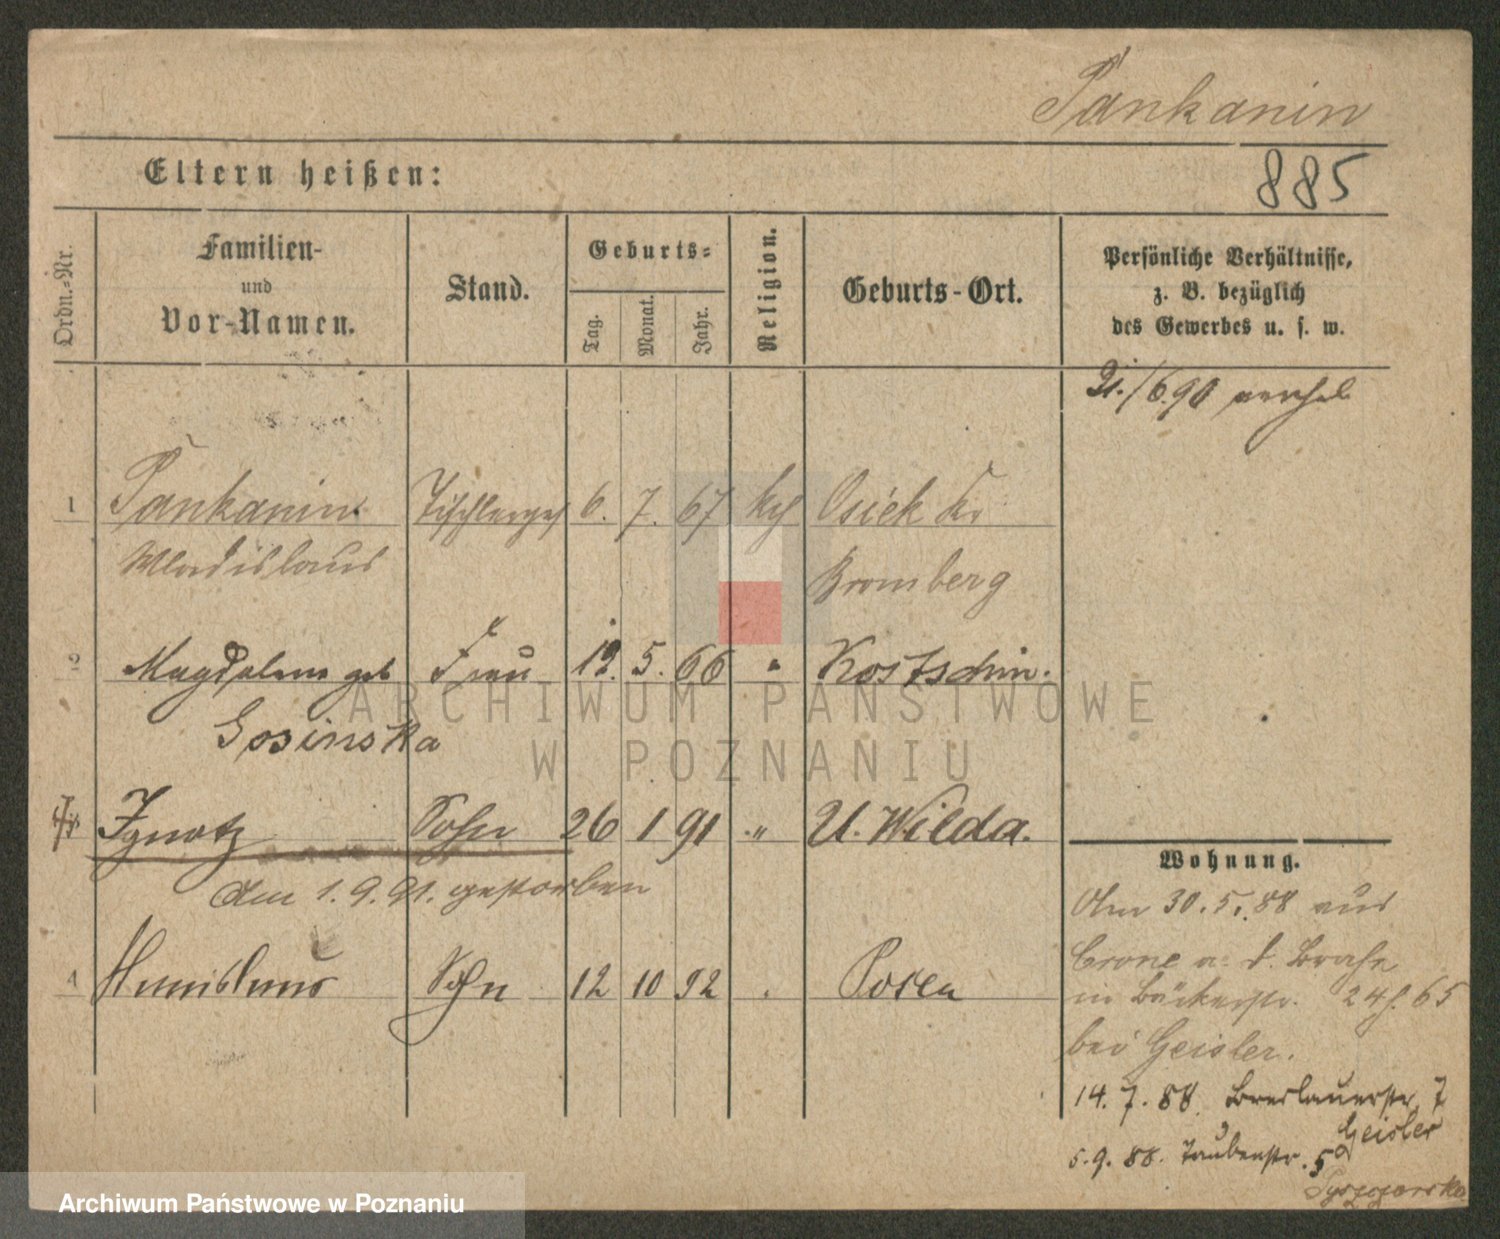 Pankanin
Eltern heißen:
885
Ordn.-Nr.
Familien-
und
Vor-Namen.
Stand.
Geburts-
Tag.
Monat.
Jahr.
Religion.
Geburts-Ort.
Persönliche Verhältnisse,
z. B. bezüglich
des Gewerbes u. s. w.
21./6.90 verhel
1 Pankanin Tischlerges 6. 7. 67 kth Osiek Kr
Wladislaus Bromberg
2 Magdalena geb Frau 19. 5. 66 " Kostschin.
Gosinska
Ignatz Sohn 26 1 91 " U. Wilda.
am 1.9.91. gestorben
4 Stanislaus Sohn 12 10 92 . Posen
Wohnung.
Am 30.5.88 aus
Crone a. d. Brahe
in Bäckerstr. 24 65
bei Geisler.
14.7.88. Breslauerstr. 7
Geisler
5.9.88. Taubenstr. 5
ARCHIWUM PAŃSTWOWE
W POZNANIU
Archiwum Państwowe w Poznaniu